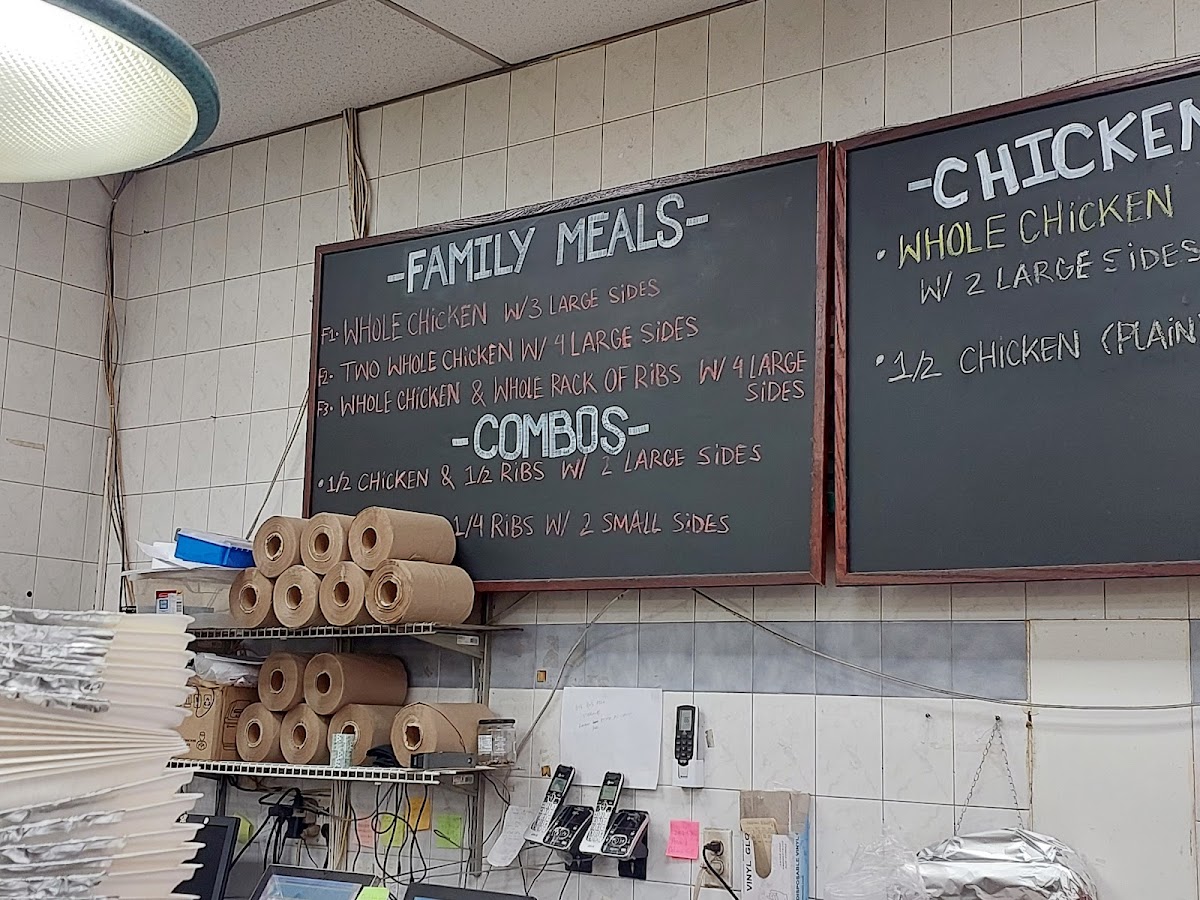 -FAMILY MEALS-
F1• WHOLE CHiCKEN W/3 LARGE SiDES
F2• TWO WHOLE CHiCKEN W/ 4 LARGE SiDES
F3• WHOLE CHiCKEN & WHOLE RACK OF RiBS W/ 4 LARGE
SiDES
-COMBOS-
•1/2 CHiCKEN & 1/2 RiBS W/ 2 LARGE SiDES
1/4 RiBS W/ 2 SMALL SiDES
-CHICKEN
• WHOLE CHiCKEN
W/ 2 LARGE SiDES
• 1/2 CHiCKEN (PLAiN)
VINYL GLO